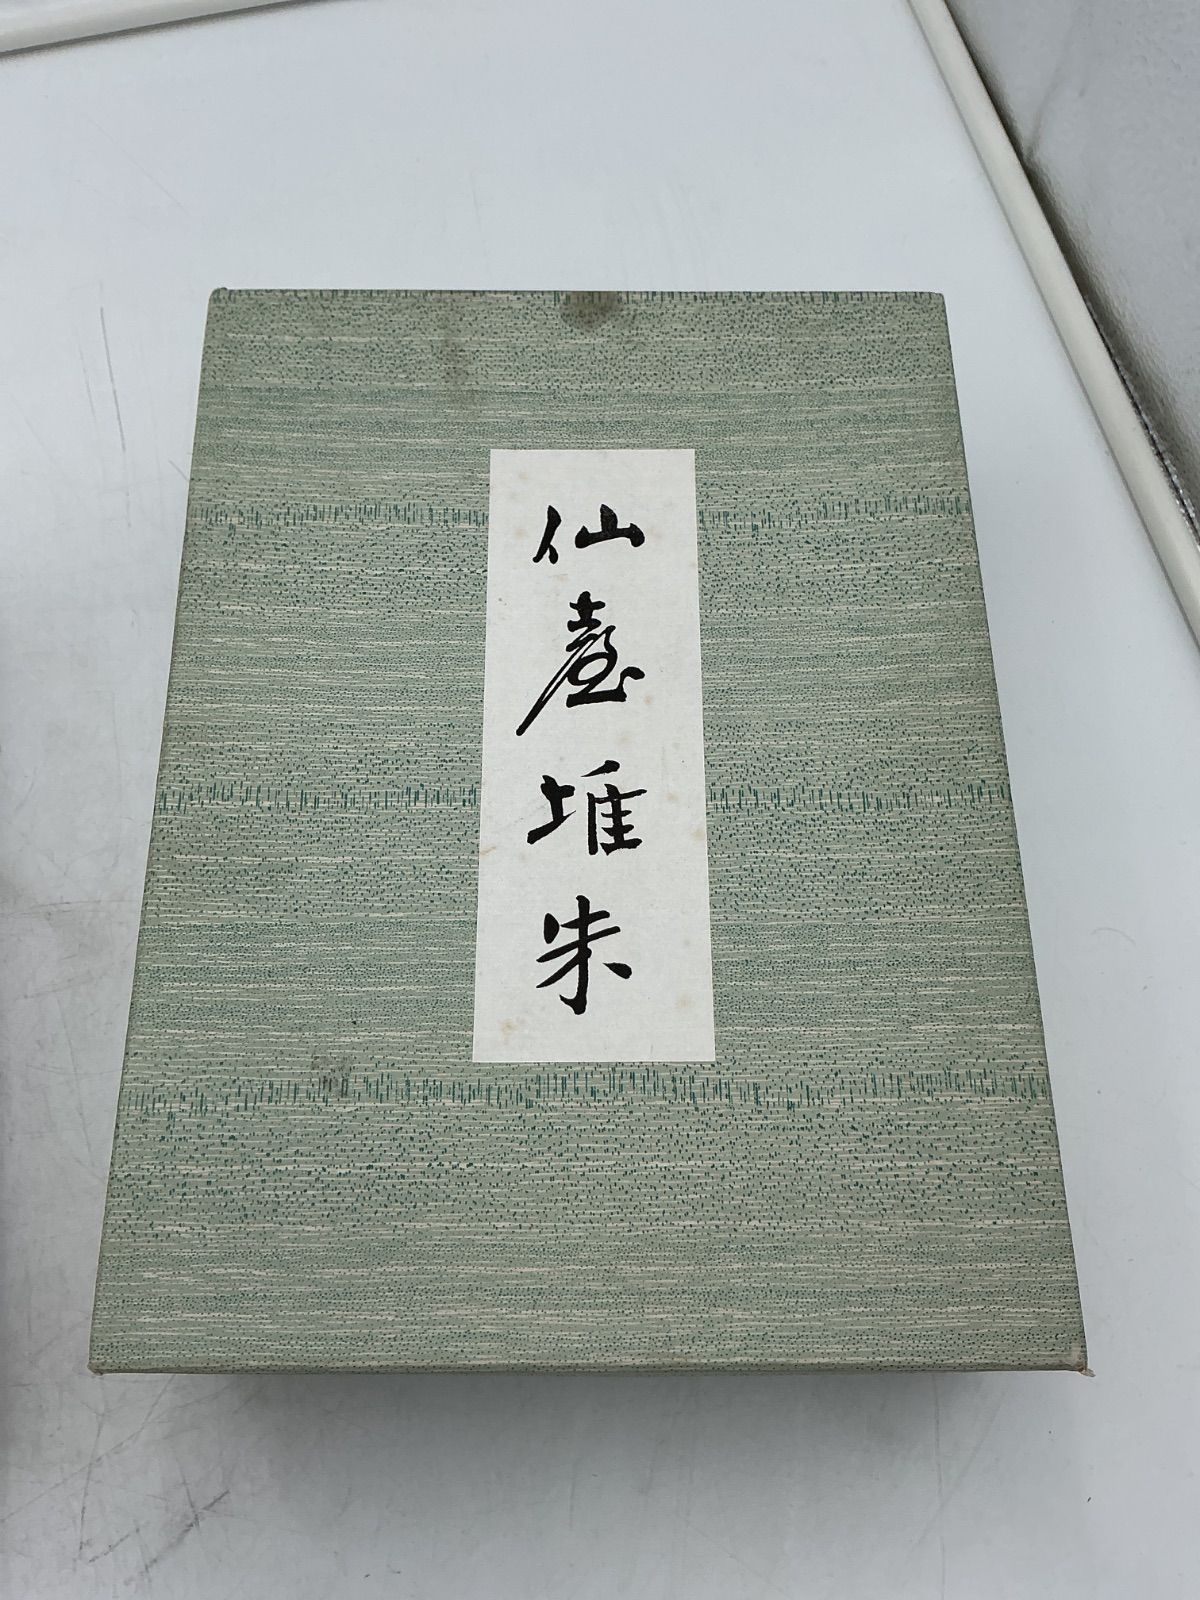 仙臺堆朱